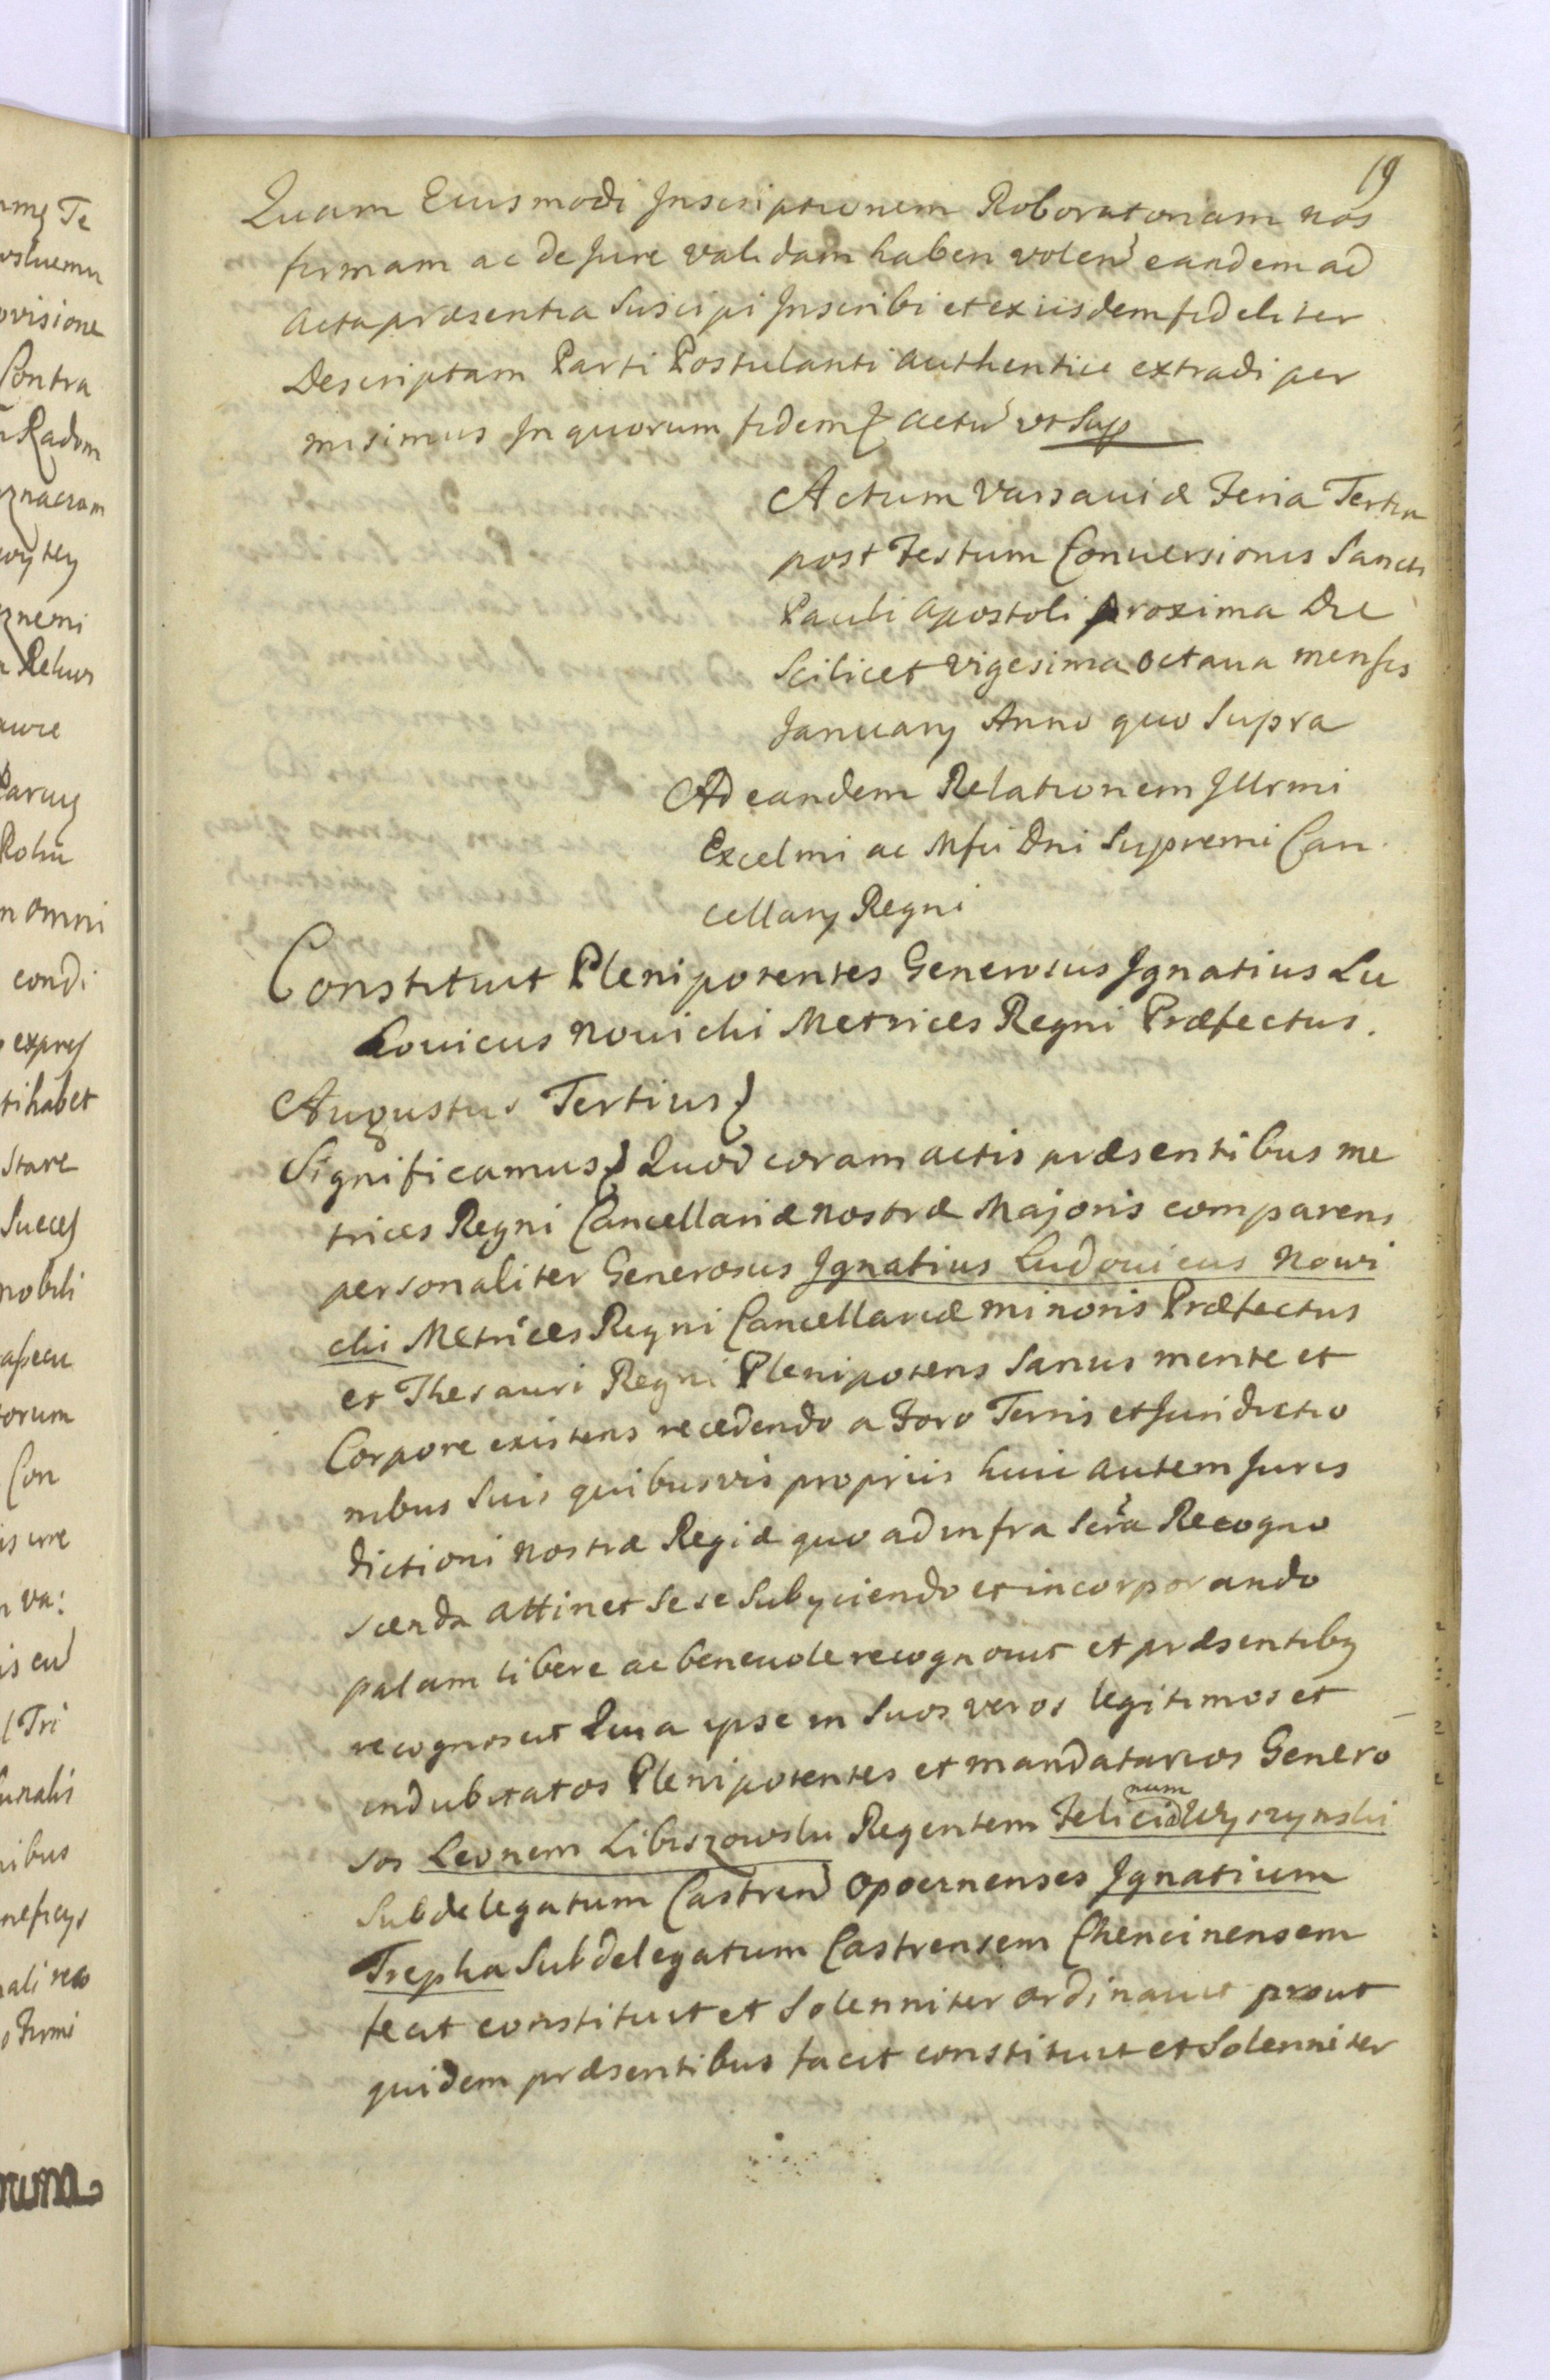 19
Quam Eiusmodi Inscriptionem Roboratoriam nos
firmam ac de Jure validam haberi volen eandem ad
acta præsentia Suscipi Inscribi et ex iisdem fideliter
Descriptam Parti Postulanti authentice extradi per
misimus In quorum fidem actu ut Sup
Actum Varsaviæ Feria Tertia
post Festum Conversionis Sancti
Pauli Apostoli proxima Die
Scilicet vigesima octava mensis
January Anno quo Supra
Ad eandem Relationem Illrmi
Excelmi ac Mfci Dni Supremi Can
cellary Regni
Constituit Plenipotentes Generosus Ignatius Lu
dovicus Nowicki Metrices Regni Præfectus.
Augustus Tertius
Significamus Quod coram actis præsentibus me
trices Regni Cancellariæ nostræ Majoris comparens
personaliter Generosus Ignatius Ludovicus Nowi
cki Metrices Regni Cancellariæ minoris Præfectus
et Thesauri Regni Plenipotens Sanus mente et
Corpore existens recedendo a Foro Terris et Juridictio
nibus Suis quibusvis propriis huic autem Juris
dictioni nostræ Regiæ quo ad infra Scra Recogno
scenda attinet Sese Subyciendo et incorporando
palam libere ac benevole recognovit et præsentiby
recognoscit Quia ipse in Suos veros legitimos et
indubitatos Plenipotentes et mandatarios Genero
sos Leonem Libiszowski Regentem Felicianum Wyszynski
Subdelegatum Castren Opocznenses Ignatium
Trepka Subdelegatum Castrensem Chencinensem
fecit constituit et Solenniter ordinavit prout
quidem præsentibus facit constituit et Solenniter